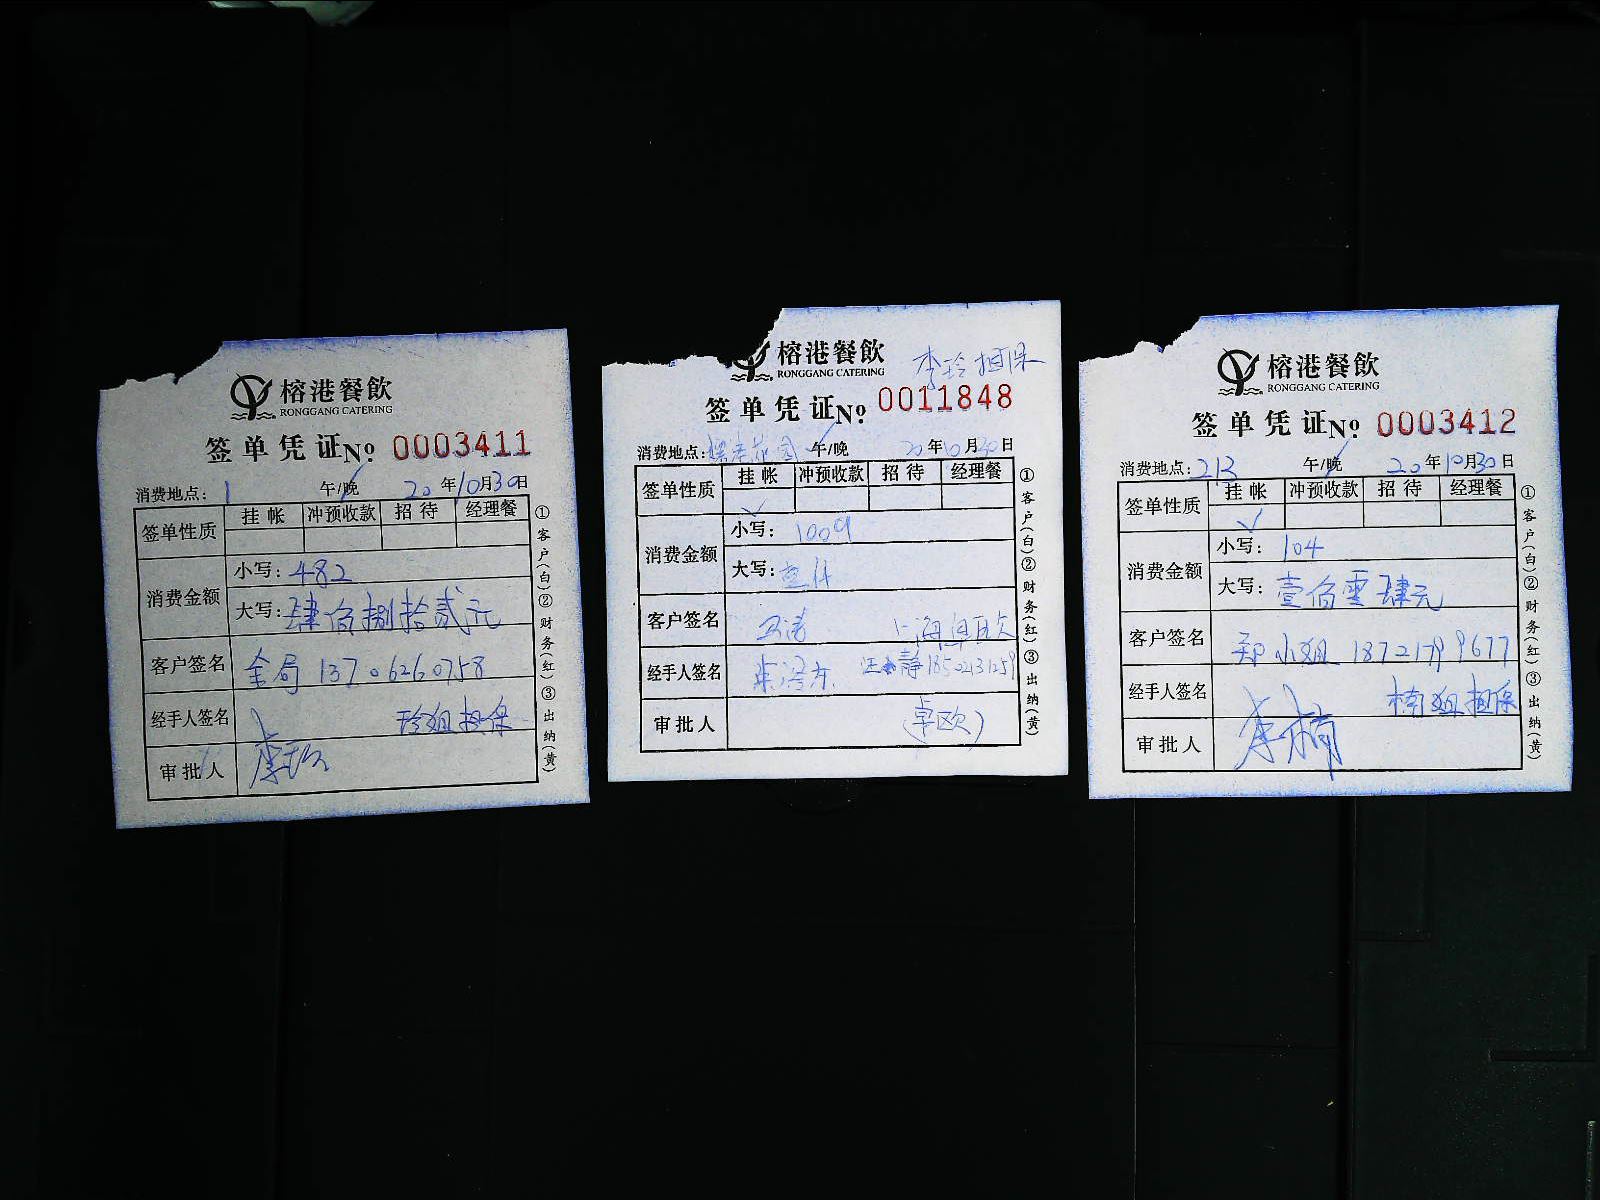 榕港餐飲
RONGGANG CATERING
签单凭证 No 0003411
消费地点: 1 午/晚 20年10月30日
签单性质 挂帐 冲预收款 招待 经理餐
消费金额
小写: 482
大写: 肆佰捌拾贰元
客户签名 金局 13706260758
经手人签名 玲姐担保
审批人 李玲
①客户(白)②财务(红)③出纳(黄)
榕港餐飲 李玲担保
RONGGANG CATERING
签单凭证 No 0011848
消费地点: 午/晚 20年10月30日
签单性质 挂帐 冲预收款 招待 经理餐
消费金额
小写: 1009
大写:
客户签名 上海
经手人签名 静
审批人 (卓欧)
①客户(白)②财务(红)③出纳(黄)
榕港餐飲
RONGGANG CATERING
签单凭证 No 0003412
消费地点: 213 午/晚 20年10月30日
签单性质 挂帐 冲预收款 招待 经理餐
消费金额
小写: 104
大写: 壹佰零肆元
客户签名 郑小姐 18721799677
经手人签名 楠姐担保
审批人 李楠
①客户(白)②财务(红)③出纳(黄)